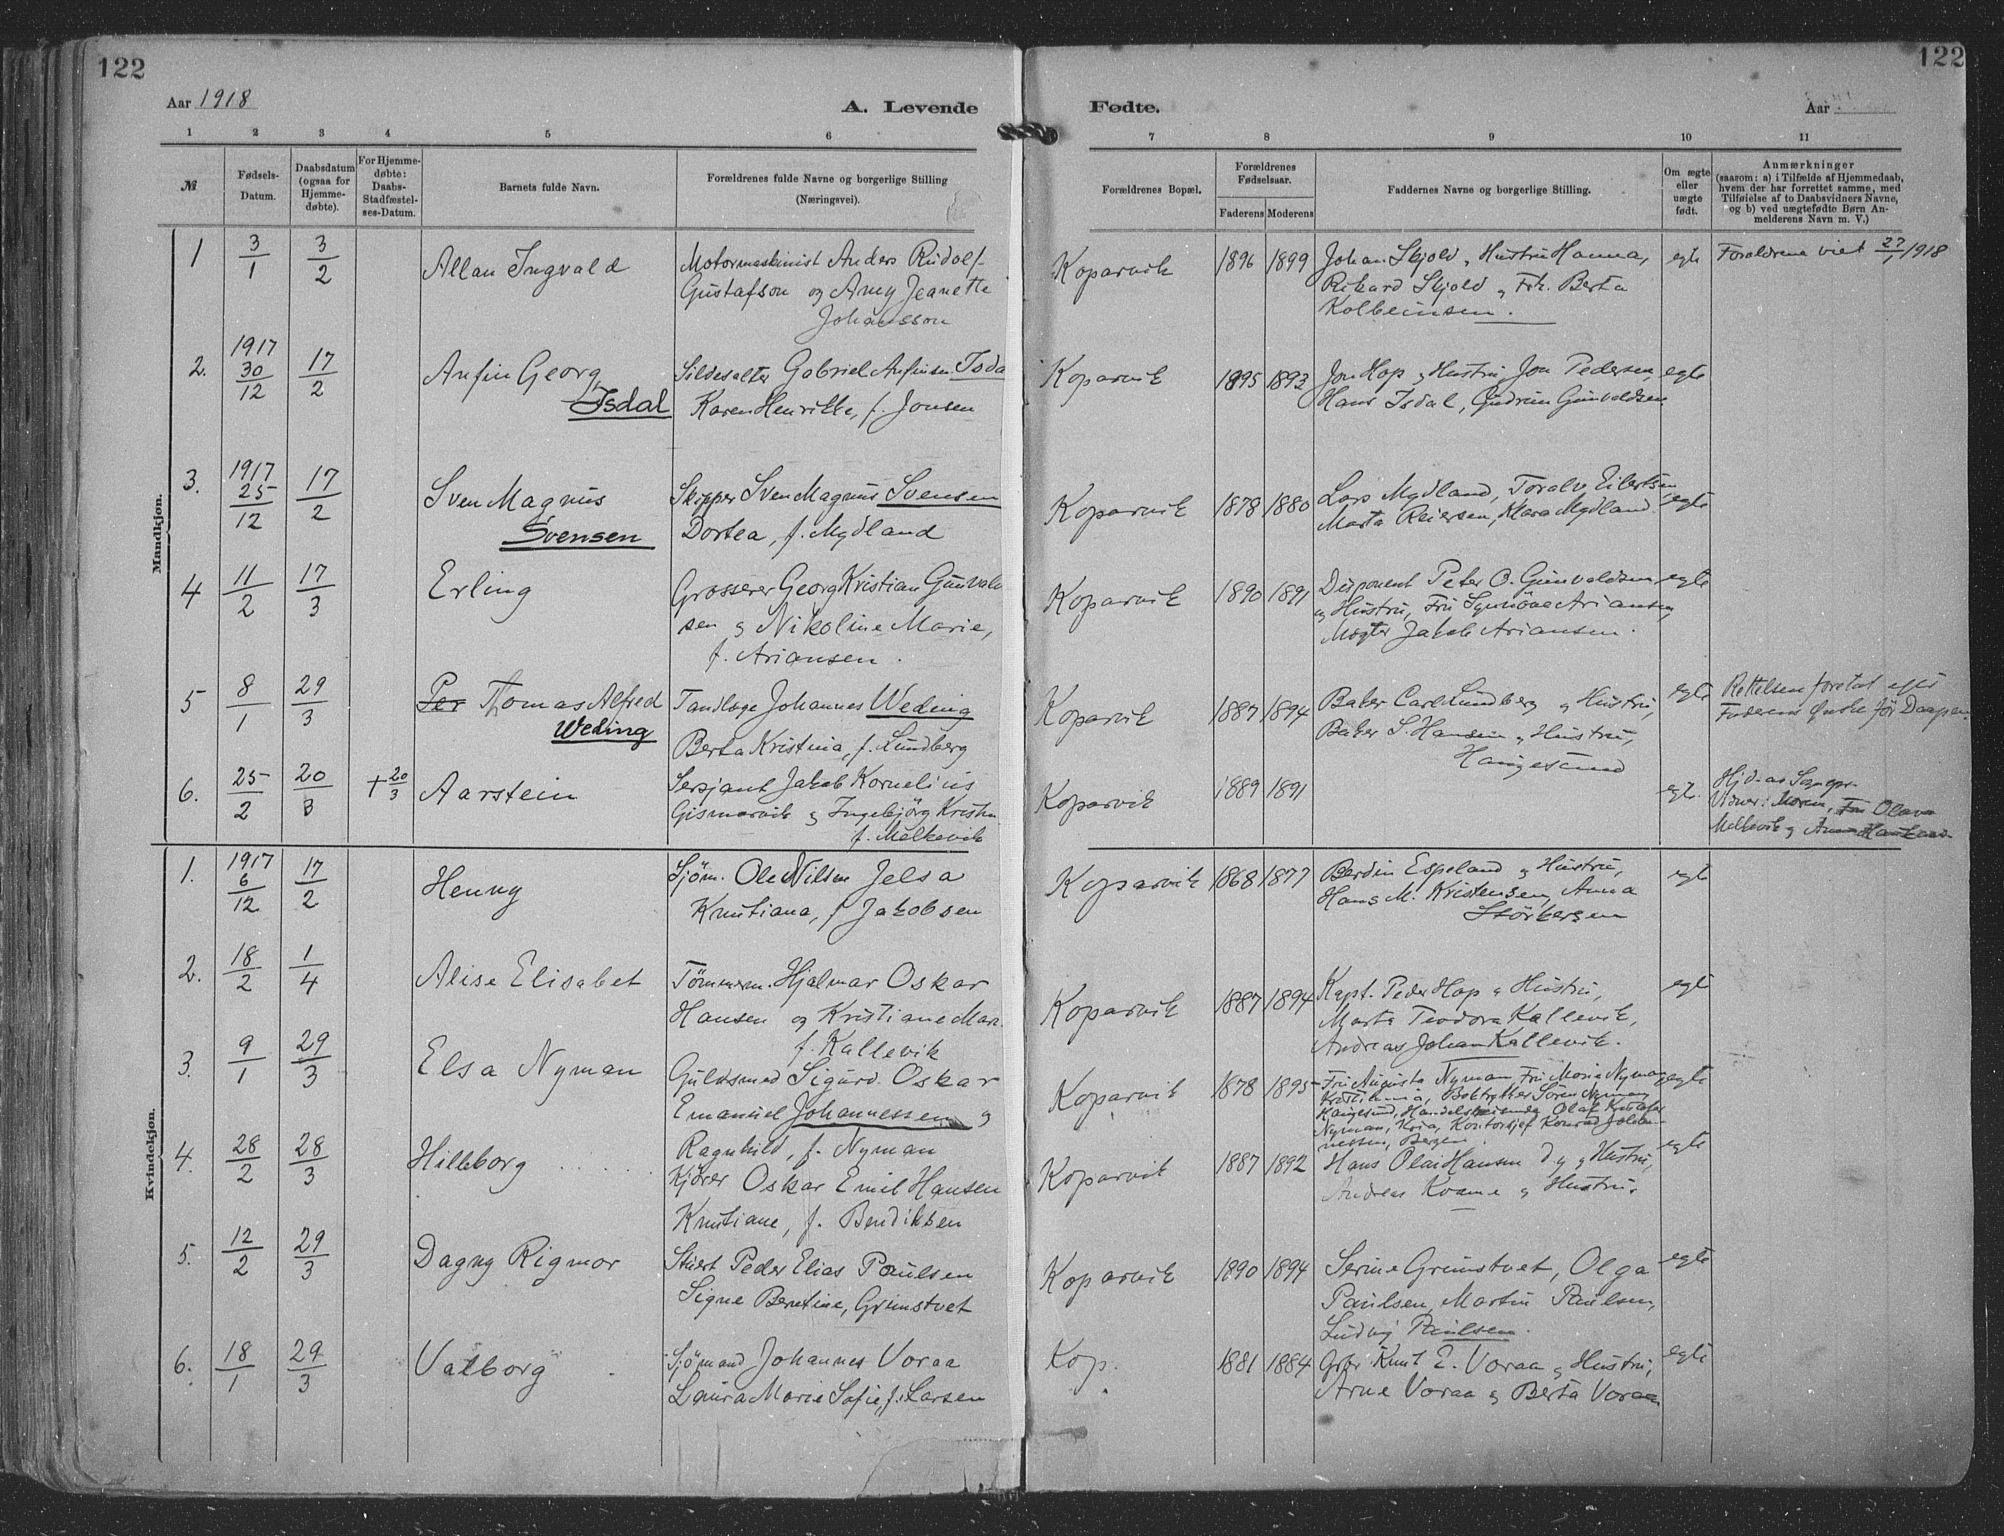 122
122
Aar 1918
A. Levende
Fødte.
Aar
1 2 3 4 5 6 7 8 9 10 11
№
Fødsels-
Datum.
Daabsdatum
(ogsaa for
Hjemme-
døbte).
For Hjemme-
døbte:
Daabs-
Stadfæstel-
ses-Datum.
Barnets fulde Navn.
Forældrenes fulde Navne og borgerlige Stilling
(Næringsvei).
Forældrenes Bopæl.
Forældrenes
Fødselsaar.
Faderens Moderens
Faddernes Navne og borgerlige Stilling.
Om ægte
eller
uægte
født.
Anmærkninger
(saasom: a) i Tilfælde af Hjemmedaab,
hvem der har forrettet samme, med
Tilføielse af to Daabsvidners Navne,
og b) ved uægtefødte Børn An-
melderens Navn m. V.)
Mandkjøn.
1 3/1 3/2 Allan Ingvald
Motormaskinist Anders Rudolf
Gustafson og Amy Jeanette
Johansson
Koparvik 1896 1899
Johan Skjold, Hustru Hanna,
Rikard Skjold og Frk. Berta
Kolbeinsen.
egte
Forældrene viet 27/1 1918
2. 1917 30/12 17/2 Anfin Georg
Isdal
Sildesalter Gabriel Anfinsen Isda
Karen Henrikke, f. Jonsen
Koparvik 1895 1893
Jon Hop og Hustru Jon Pedersen,
Hans Isdal, Gudrun Gunvaldsen.
egte
3. 1917 25/12 17/2 Sven Magnus
Svensen
Skipper Sven Magnus Svensen
Dortea, f. Mydland
Koparvik 1878 1880
Lars Mydland, Toralv Eilertsen
Marta Reiersen, Klara Mydland.
egte
4 11/2 17/3 Erling
Grosserer Georg Kristian Gunvald
sen og Nikoline Marie,
f. Ariansen.
Koparvik 1890 1891
Disponent Peter O. Gunvaldsen
og Hustru, Fru Synnöve Ariansen,
Mægler Jakob Ariansen.
egte
5 8/1 29/3 Per Thomas Alfred
Weding
Tandlæge Johannes Weding
Berta Kristina, f. Lundberg
Koparvik 1887 1894
Baker Carl Lundberg og Hustru,
Baker S. Hansen og Hustru,
Haugesund
egte
Rettelsen foretat efter
Faderens Önske för Daapen.
6. 25/2 20/3 + 20/3 Aarstein
Sersjant Jakob Kornelius
Gismarvik og Ingebjörg Kristin
f. Melkevik
Koparvik 1889 1891
egte.
Hjd. av Sognepr.
Vidner: Moren, Fru Olava
Melkevik og
Kvindekjøn.
1. 1917 6/12 17/2 Henny
Sjöm. Ole Nilsen Jelsa
Knutiana, f. Jakobsen
Koparvik 1868 1877
Berdin Espeland og Hustru,
Hans M. Kristensen, Anna
Störkersen
egte
2. 18/2 1/4 Alise Elisabet
Tömmerm. Hjalmar Oskar
Hansen og Kristiane Mar.
f. Kallevik
Koparvik 1887 1894
Kapt. Peder Hop og Hustru,
Marta Teodora Kallevik,
Andreas Johan Kallevik.
egte
3. 9/1 29/3 Elsa Nyman
Guldsmed Sigurd Oskar
Emanuel Johannessen og
Ragnhild, f. Nyman
Koparvik 1878 1895
Fru Augusta Nyman Fru Maria Nyman
Kristiania, Boktrykker Sören Nyman
Haugesund, Handelsreisende Olaf Kristofer
Nyman, Kria, Kontorsjef Konrad Johan-
nessen, Bergen.
egte
4. 28/2 28/3 Hilleborg
Kjörer Oskar Emil Hansen
Knutiane, f. Bendiksen
Koparvik 1887 1892
Hans Olai Hansen d.y. og Hustru,
Andreas Kvame og Hustru.
egte
5. 12/2 29/3 Dagny Rigmor
Stuert Peder Elias Paulsen
Signe Berntine, Grimstvet
Koparvik 1890 1894
Serine Grimstvet, Olga
Paulsen, Martin Paulsen,
Ludvig Paulsen.
egte
6. 18/1 29/3 Valborg
Sjömand Johannes Voraa
Laura Marie Sofie, f. Larsen
Kop. 1881 1884
Gbr. Knut E. Voraa og Hustru,
Arne Voraa og Berta Voraa
egte